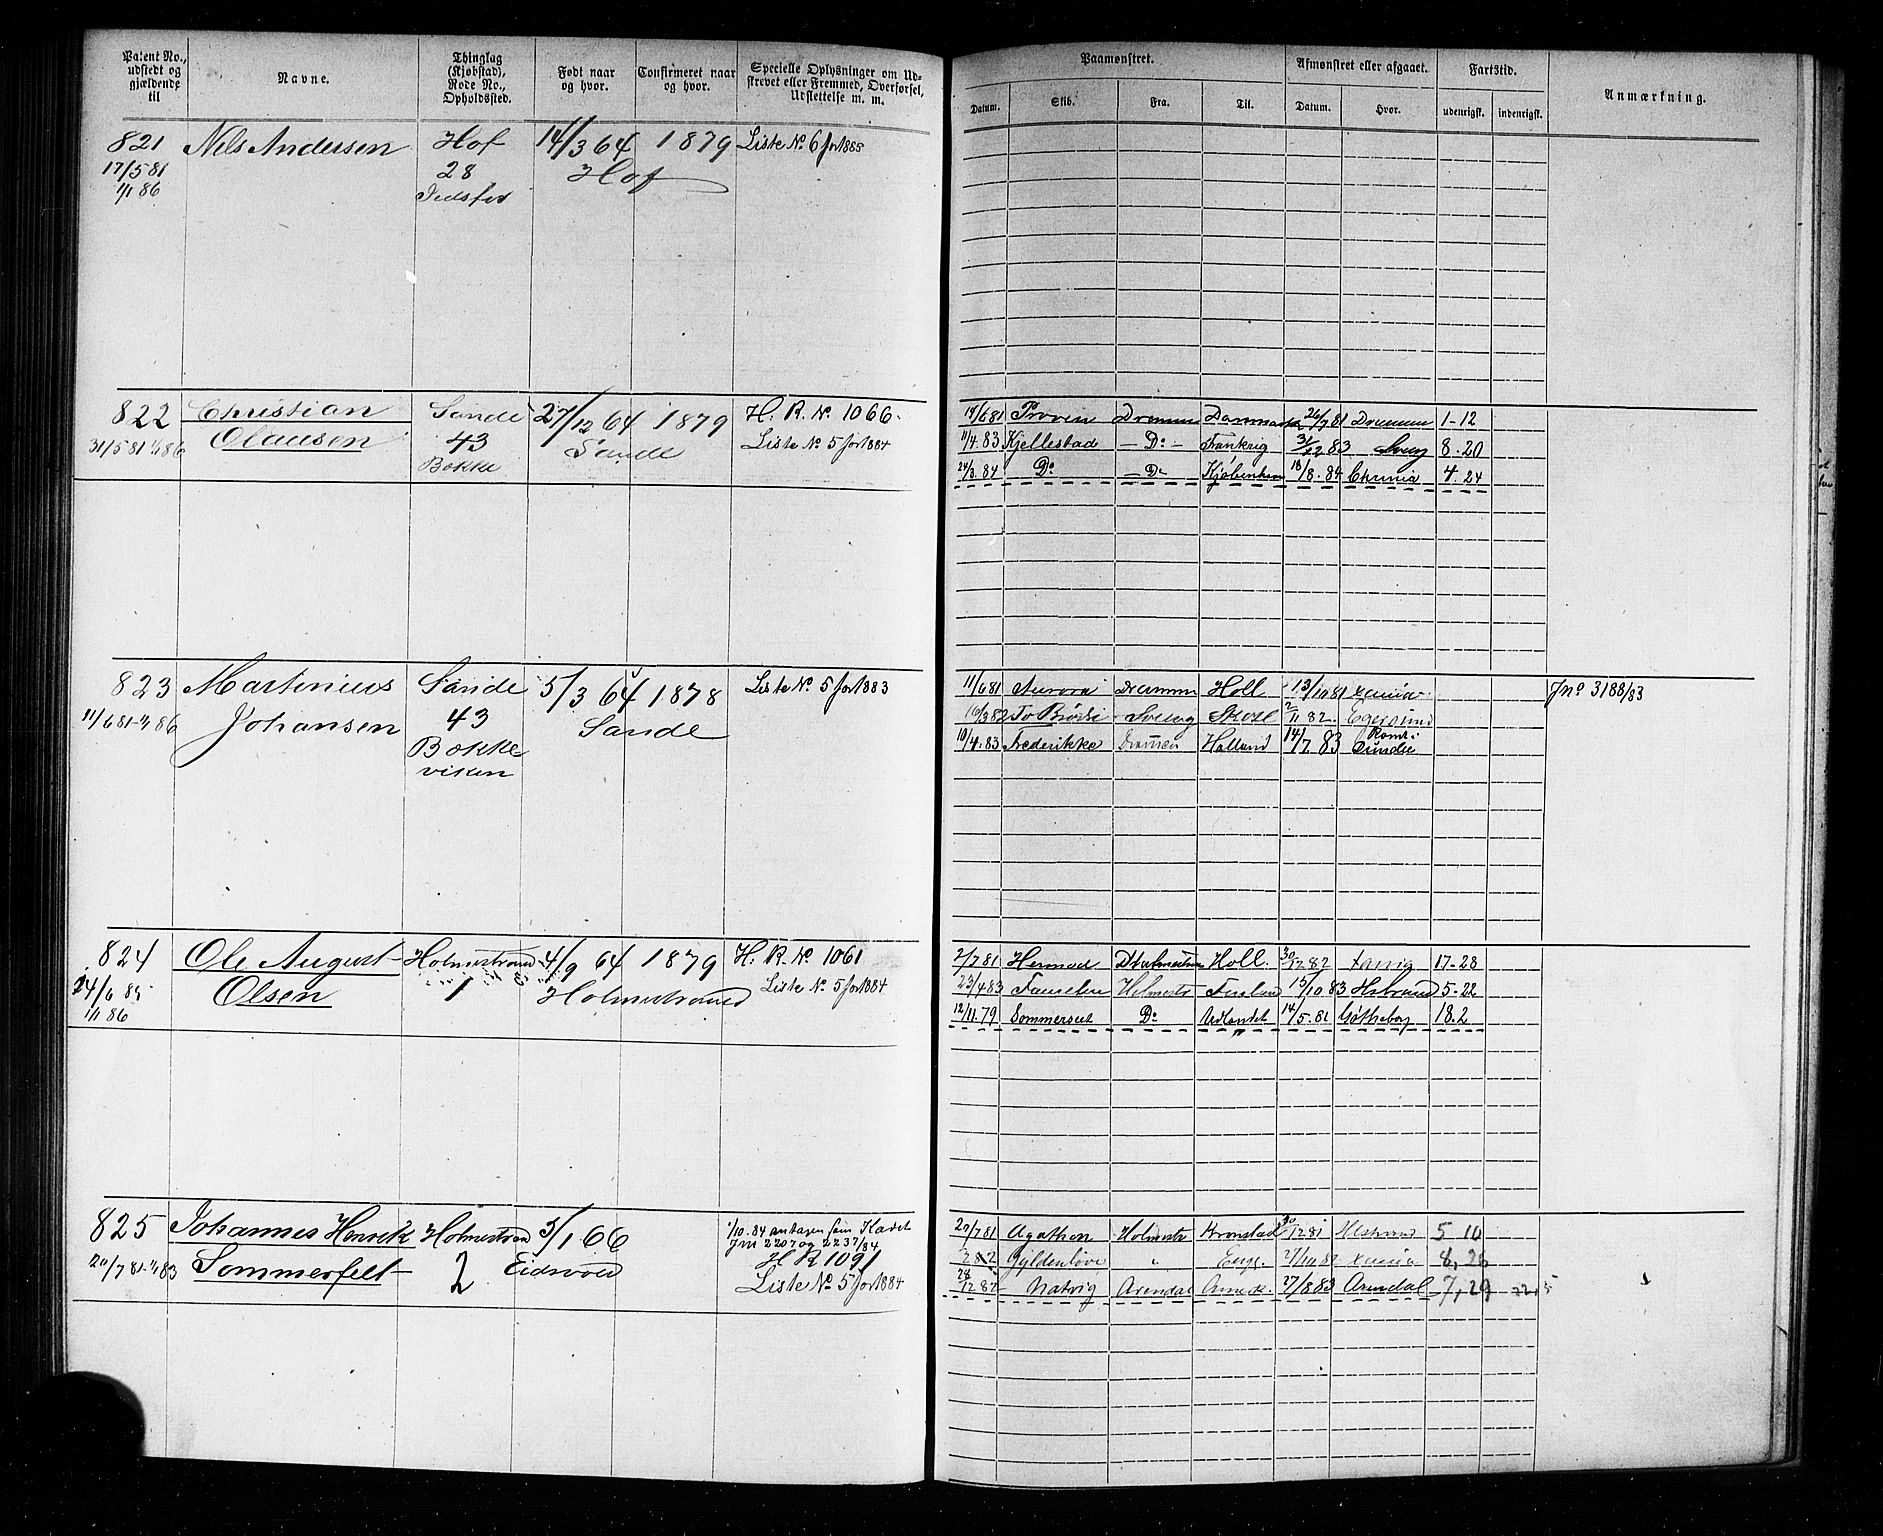 Patent No., udstedt og gjældende til
Navne.
Thinglag (Kjøbstad), Rode No., Opholdssted.
Født naar og hvor.
Confirmeret naar og hvor.
Specielle Oplysninger om Udstrevet eller Fremmed, Overførsel, Udslettelse m. m.
Paamønstret.
Afmønstret eller afgaaet.
Fartstid.
Anmærkning.
Datum.
Skib.
Fra.
Til.
Datum.
Hvor.
udenrigsk.
indenrigsk.
821 Nels Andersen Hof 14/3 64 1879 Liste No 6 for 1885
17/5 81 28 Hof
1/1 86
822 Christian Sande 27/12 64 1879 H. R. No. 1066.
31/5 81 1/1 86 Olausen 43 Sande Liste No 5 for 1884
Bokke
14/6 81 Dramm Danmark 26/7 81 Drammen 1-12
11/4. 83 Kjellestad - Do - Frankrig 83 8. 20
24/3. 84 Do - Do Kjøbenhavn 18/8. 84 Chrania 4. 24
823 Martinius Sande 5/3 64 1878 Liste No. 5 for 1883
11/6 81-1/1 86 Johansen 43 Sande
Bokke
viken
11/6 81 Aurora Drammn Holl 13/10 81 Xania Jno 3188/83
16/3 82 To Brødre Svelvig 2/11 82. Egersund
10/4. 83 Frederikke Dramen Holland 14/7 83 Roms-
sundse
824 Ole August Holmestrand 4/9 64 1879 H. R. No 1061
14/6 81 Olsen 1 Holmestrand Liste No. 5 for 1884
1/1 86
2/7 81 Hermod Holl. 30/12 82 Xania 17-28
23/4 83 Holmestr 13/10 83 Hstrand 5-22
12/11. 79 Sommerset Do Udlandet 14/5. 81 Gøtheborg 18.2
825 Johannes Henrik Holmestrand 5/1 66 1/10. 84 antagen som Kadet
Jno 2207 og 2237/84
20/7 81-1/1 83 Sommerfelt 2 Eidsvold H R 1091
Liste No. 5 for 1884
20/7 81 Agathon Holmestr Kronstad 30/12 81 Hstrand 5 10
Gyldenløve " Eng. 27/10 82 Xania 8, 26
28/12 82 Natvig Arendal Amerik. 27/8 83 Arendal 7, 29